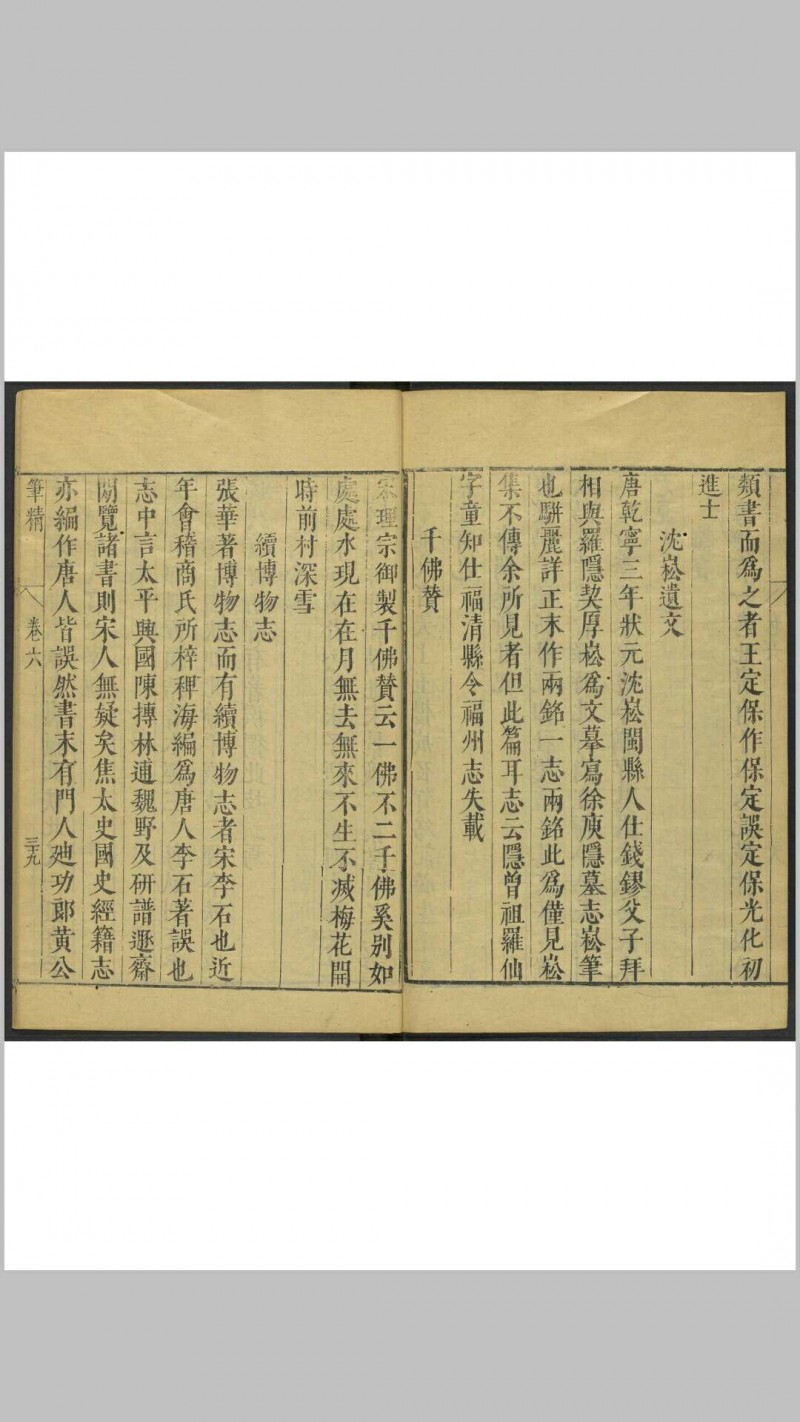 類書而爲之者王定保作保定誤定保光化初
進士
沈崧遺文
唐乾寧三年狀元沈崧閩縣人仕錢鏐父子拜
相與羅隱契厚崧爲文摹寫徐庾隱墓志崧筆
也駢麗詳正末作兩銘一志兩銘此爲僅見崧
集不傳余所見者但此篇耳志云隱曾祖羅仙
字童知仕福清縣令福州志失載
千佛賛
宋理宗御製千佛賛云一佛不二千佛奚别如
處處水現在在月無去無來不生不滅梅花開
時前村深雪
續博物志
張華著博物志而有續博物志者宋李石也近
年會稽商氏所梓稗海編爲唐人李石著誤也
志中言太平興國陳摶林逋魏野及研譜遯齋
閒覽諸書則宋人無疑矣焦太史國史經籍志
亦編作唐人皆誤然書末有門人廸功郎黄公
筆精
卷六
三十九